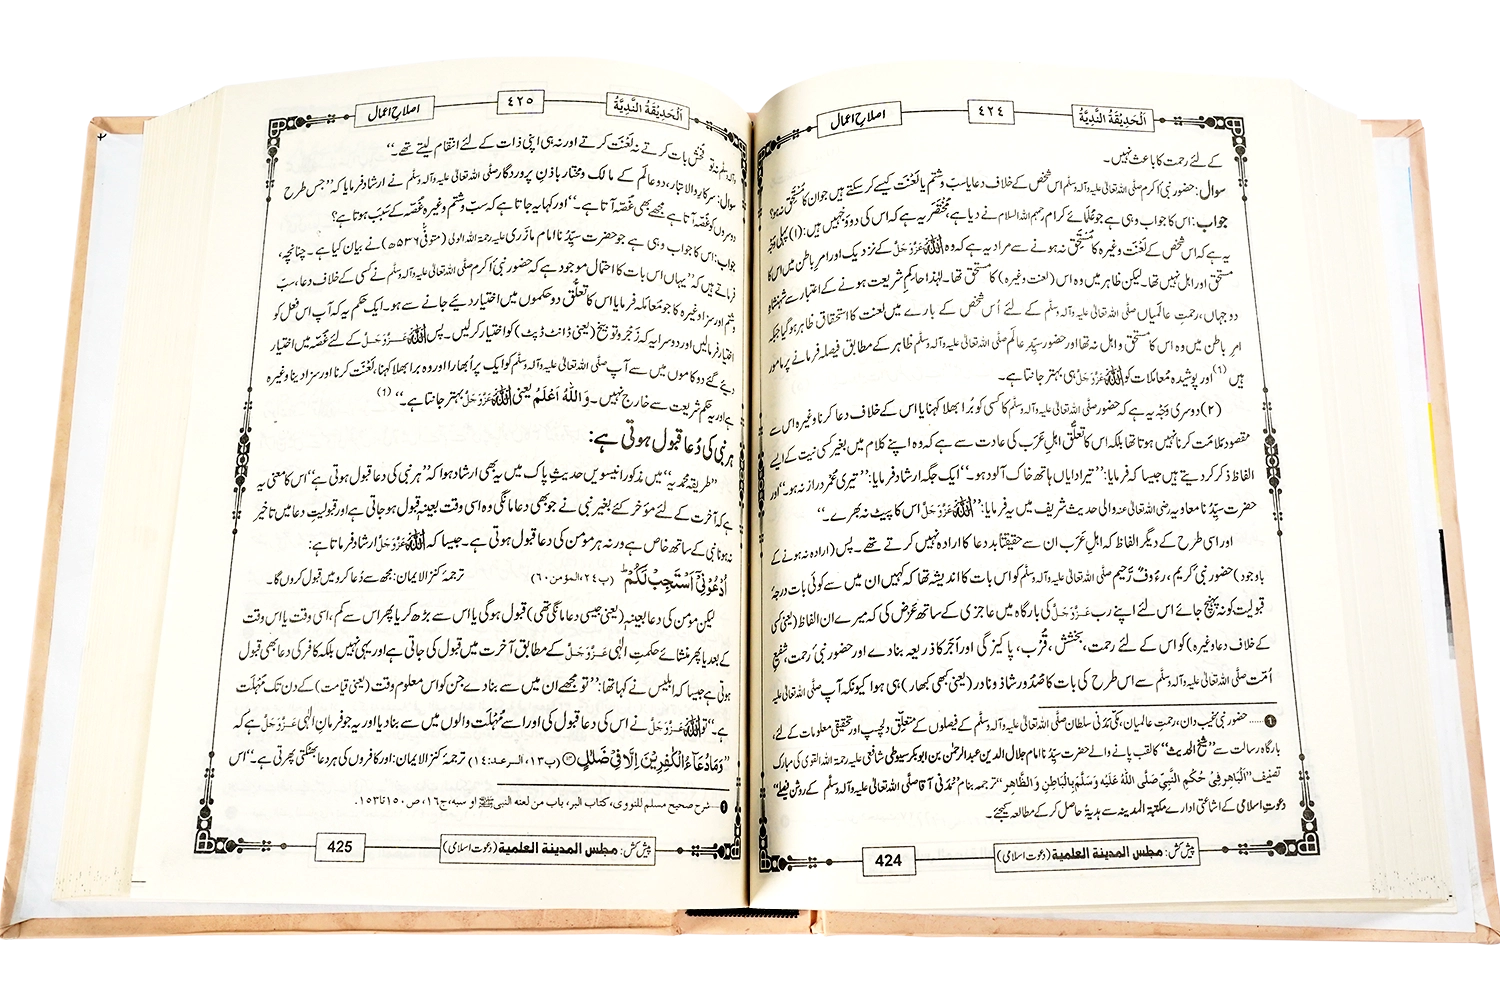 اَلْحَدِیْقَۃُ النَّدِیَّۃُ
٤٢٤
اصلاحِ اعمال
کے لئے رحمت کا باعث نہیں۔
سوال: حضور نبیٔ اکرم صلَّی اللہ تعالیٰ علیہ وآلہ وسلَّم اس شخص کے خلاف دعا یا سبّ وشتم یا لعنت کیسے کر سکتے ہیں جو ان کا مُستحق نہ ہو؟
جواب: اس کا جواب وہی ہے جو عُلمائے کرام رحمہم اللہ السلام نے دیا ہے، مُختَصَر یہ ہے کہ اس کی دو وَجہیں ہیں: (۱) پہلی وَجہ
یہ ہے کہ اس شخص کے لَعْنَت وغیرہ کا مُسْتَحِق نہ ہونے سے مراد یہ ہے کہ وہ اللہ عَزَّوَجَلَّ کے نزدیک اور امرِ باطن میں اس کا
مستحق اور اہل نہیں تھا۔ لیکن ظاہر میں وہ اس (لعنت وغیرہ) کا مستحق تھا۔ لہٰذا حاکمِ شریعت ہونے کے اعتبار سے شہنشاہِ
دو جہاں، رحمتِ عالمیاں صلَّی اللہ تعالیٰ علیہ وآلہ وسلَّم کے لئے اُس شخص کے بارے میں لعنت کا استحقاق ظاہر ہو گیا جبکہ
امرِ باطن میں وہ اس کا مستحق و اہل نہ تھا اور حضور سیِّدِ عالَم صلَّی اللہ تعالیٰ علیہ وآلہ وسلَّم ظاہر کے مطابق فیصلہ فرمانے پر مامور
ہیں (۱) اور پوشیدہ معاملات کو اللہ عَزَّوَجَلَّ ہی بہتر جانتا ہے۔
(۲) دوسری وَجْہ یہ ہے کہ حضور صلَّی اللہ تعالیٰ علیہ وآلہ وسلَّم کا کسی کو بُرا بھلا کہنا یا اس کے خلاف دعا کرنا وغیرہ اس سے
مقصود مَلامَت کرنا نہیں ہوتا تھا بلکہ اس کا تعلُّق اہلِ عَرَب کی عادت سے ہے کہ وہ اپنے کلام میں بغیر کسی نیت کے ایسے
الفاظ ذکر کر دیتے ہیں جیسا کہ فرمایا: ’’تیرا دایاں ہاتھ خاک آلود ہو۔‘‘ ایک جگہ ارشاد فرمایا: ’’تیری عُمْر دراز نہ ہو۔‘‘ اور
حضرت سیِّدُنا معاویہ رضی اللہ تعالیٰ عنہ والی حدیث شریف میں یہ فرمایا: ’’اللہ عَزَّوَجَلَّ اس کا پیٹ نہ بھرے۔‘‘
اور اسی طرح کے دیگر الفاظ کہ اہلِ عَرَب ان سے حقیقتًا بددعا کا ارادہ نہیں کرتے تھے۔ پس (ارادہ نہ ہونے کے
باوجود) حضور نبیٔ کریم، رءوفٌ رَّحیم صلَّی اللہ تعالیٰ علیہ وآلہ وسلَّم کو اس بات کا اندیشہ تھا کہ کہیں ان میں سے کوئی بات درجۂ
قبولیت کو نہ پہنچ جائے اس لئے اپنے رب عَزَّوَجَلَّ کی بارگاہ میں عاجزی کے ساتھ عَرْض کی کہ میرے ان الفاظ (یعنی کسی
کے خلاف دعا وغیرہ) کو اس کے لئے رحمت، بخشش، قُرْب، پاکیزگی اور اَجْر کا ذریعہ بنا دے اور حضور نبیٔ رحمت، شفیعِ
اُمّت صلَّی اللہ تعالیٰ علیہ وآلہ وسلَّم سے اس طرح کی بات کا صُدُور شاذ و نادر (یعنی کبھی کبھار) ہی ہوا کیونکہ آپ صلَّی اللہ تعالیٰ علیہ
1 ...... حضور نبیٔ غیب دان، رحمتِ عالمیان، مکّی مَدَنی سلطان صلَّی اللہ تعالیٰ علیہ وآلہ وسلَّم کے فیصلوں کے متعلِّق دلچسپ اور تحقیقی معلومات کے لئے،
بارگاہِ رسالت سے ’’شیخُ الحدیث‘‘ کا لقب پانے والے حضرت سیِّدُنا امام جلال الدین عبد الرحمٰن بن ابو بکر سیوطی شافعی علیہ رحمۃ اللہ القوی کی مبارک
تصنیف ’’اَلْبَاھِرُ فِیْ حُکْمِ النَّبِیِّ صَلَّی اللہُ عَلَیْہِ وَسَلَّمَ بِالْبَاطِنِ وَالظَّاھِر‘‘ ترجمہ بنام ’’مَدَنی آقا صلَّی اللہ تعالیٰ علیہ وآلہ وسلَّم کے روشن فیصلے‘‘
دعوتِ اسلامی کے اشاعتی ادارے مکتبۃ المدینہ سے ہدیۃً حاصل کر کے مطالعہ کیجئے۔
پیش کش: مجلس المدینۃ العلمیۃ (دعوتِ اسلامی)
424
اَلْحَدِیْقَۃُ النَّدِیَّۃُ
٤٢٥
اصلاحِ اعمال
وآلہ وسلَّم نہ تو فُحش بات کرتے نہ لَعْنَت کرتے اور نہ ہی اپنی ذات کے لئے انتقام لیتے تھے۔‘‘
سوال: سرکارِ والا تَبار، دو عالَم کے مالک و مختار باذنِ پروردگار صلَّی اللہ تعالیٰ علیہ وآلہ وسلَّم نے ارشاد فرمایا کہ ’’جس طرح
دوسروں کو غُصَّہ آتا ہے مجھے بھی غُصَّہ آتا ہے۔‘‘ اور کہا یہ جاتا ہے کہ سبّ وشتم وغیرہ غُصَّہ کے سَبَب ہوتا ہے؟
جواب: اس کا جواب وہی ہے جو حضرت سیِّدُنا امام مازری علیہ رحمۃ اللہ الولی (متوفّٰی ۵۳۶ھ) نے بیان کیا ہے۔ چنانچہ،
فرماتے ہیں کہ ’’یہاں اس بات کا احتمال موجود ہے کہ حضور نبیٔ اکرم صلَّی اللہ تعالیٰ علیہ وآلہ وسلَّم نے کسی کے خلاف دعا، سبّ
وشتم اور سزا وغیرہ کا جو مُعامَلہ فرمایا اس کا تعلُّق دو حکموں میں اختیار دیئے جانے سے ہو۔ ایک حکم یہ کہ آپ اس فعل کو
اختیار فرمالیں اور دوسرا یہ کہ زَجْر و توبیخ (یعنی ڈانٹ ڈپٹ) کو اختیار کرلیں۔ پس اللہ عَزَّوَجَلَّ کے لئے غُصّہ میں اختیار
دیئے گئے دو کاموں میں سے آپ صلَّی اللہ تعالیٰ علیہ وآلہ وسلَّم کو ایک پر اُبھارا اور وہ برا بھلا کہنا، لَعْنَت کرنا اور سزا دینا وغیرہ
ہے اور یہ حکمِ شریعت سے خارج نہیں۔ وَاللہُ اَعْلَمُ یعنی اللہ عَزَّوَجَلَّ بہتر جانتا ہے۔‘‘ (۱)
ہر نبی کی دُعا قبول ہوتی ہے:
’’طریقہ محمدیہ‘‘ میں مذکور انیسویں حدیثِ پاک میں یہ بھی ارشاد ہوا کہ ’’ہر نبی کی دعا قبول ہوتی ہے‘‘ اس کا معنٰی یہ
ہے کہ آخرت کے لئے مُؤخَّر کئے بغیر نبی نے جو بھی دعا مانگی وہ اسی وقت بعینہٖ قبول ہو جاتی ہے اور قبولیتِ دعا میں تاخیر
نہ ہونا نبی کے ساتھ خاص ہے ورنہ ہر مؤمن کی دعا قبول ہوتی ہے۔ جیسا کہ اللہ عَزَّوَجَلَّ ارشاد فرماتا ہے:
اُدْعُوْنِیْۤ اَسْتَجِبْ لَكُمْ ؕ (پ۲۴، المؤمن:۶۰) ترجمۂ کنز الایمان: مجھ سے دُعا کرو میں قبول کروں گا۔
لیکن مؤمن کی دعا بعینہٖ (یعنی جیسی دعا مانگی تھی) قبول ہو گی یا اس سے بڑھ کر یا پھر اس سے کم، اسی وقت یا اس وقت
کے بعد یا پھر منشائے حکمتِ الٰہی عَزَّوَجَلَّ کے مطابق آخرت میں قبول کی جاتی ہے اور یہی نہیں بلکہ کافر کی دعا بھی قبول
ہوتی ہے جیسا کہ ابلیس نے کہا تھا: ’’تو مجھے ان میں سے بنا دے جن کو اس معلوم وقت (یعنی قیامت) کے دن تک مُہْلَت
ہے۔‘‘ تو اللہ عَزَّوَجَلَّ نے اس کی دعا قبول کی اور اسے مُہْلَت والوں میں سے بنا دیا اور یہ جو فرمانِ الٰہی عَزَّوَجَلَّ ہے کہ
’’وَمَا دُعَآءُ الْكٰفِرِیْنَ اِلَّا فِیْ ضَلٰلٍ ﴿۱۴﴾ (پ۱۳، الرعد:۱۴) ترجمۂ کنز الایمان: اور کافروں کی ہر دعا بھٹکتی پھرتی ہے۔‘‘ اس
1 ......شرح صحیح مسلم للنووی، کتاب البر، باب من لعنہ النبی ﷺ او سبہ، ج۱۶، ص۱۵۰تا۱۵۳.
پیش کش: مجلس المدینۃ العلمیۃ (دعوتِ اسلامی)
425